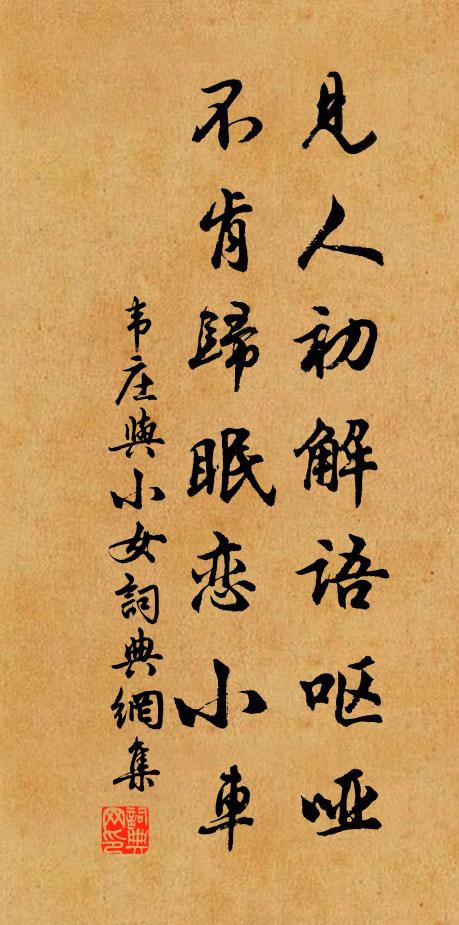 見人初解語呕哑
不肯歸眠恋小車
韦庄與小女詞典網集
詞典网印